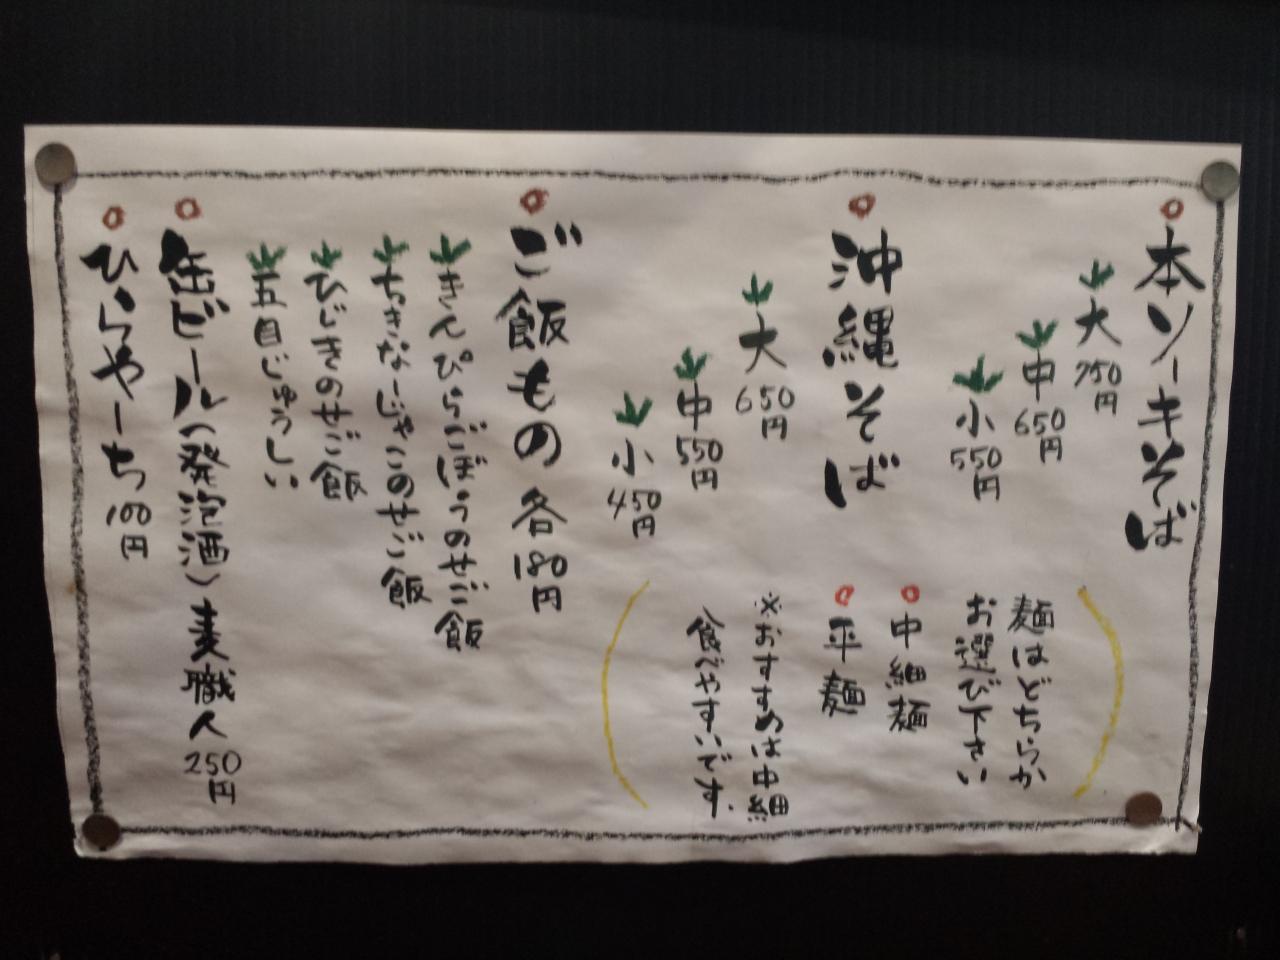 本ソーキそば
大 750円
中 650円
小 550円
麺はどちらか
お選び下さい
中細麺
平麺
※おすすめは中細
食べやすいです.
沖縄そば
大 650円
中 550円
小 450円
ご飯もの 各180円
きんぴらごぼうのせご飯
ちきなーじゃこのせご飯
ひじきのせご飯
五目じゅうしい
缶ビール(発泡酒)麦職人 250円
ひらやーち 100円